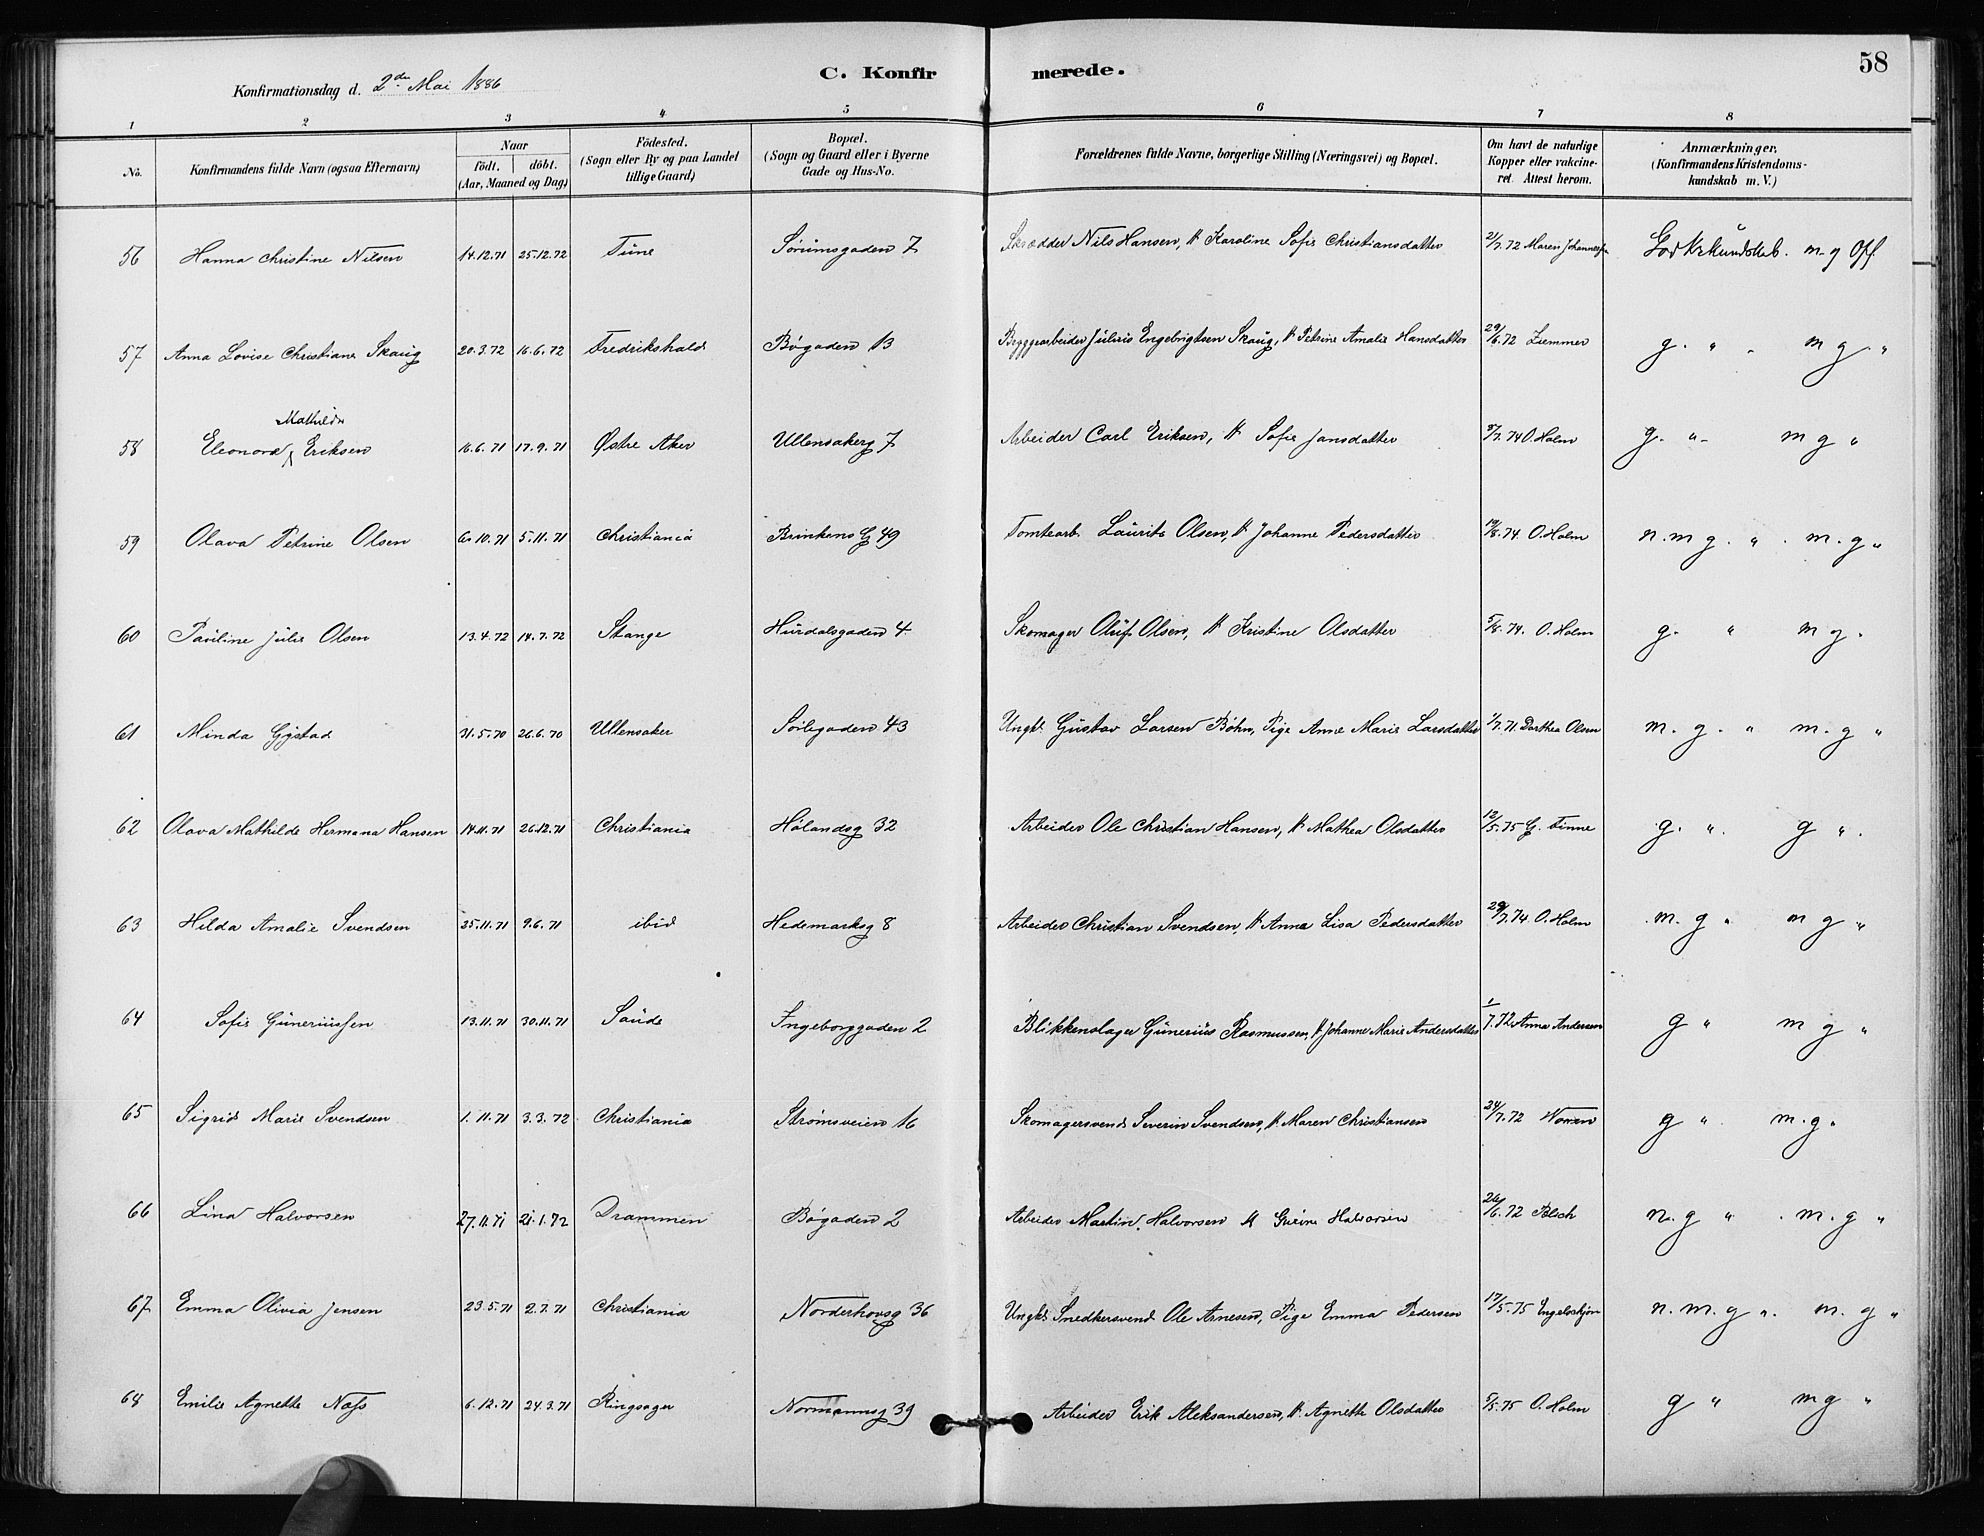 58
Konfirmationsdag d. 2den Mai 1886
C. Konfirmerede.
1 2 3 4 5 6 7 8
No. Konfirmandens fulde Navn (ogsaa Efternavn) Naar födt. döbt. (Aar, Maaned og Dag) Födested. (Sogn eller By og paa Landet tillige Gaard) Bopæl. (Sogn og Gaard eller i Byerne Gade og Hus-No. Forældrenes fulde Navne, borgerlige Stilling (Næringsvei) og Bopæl. Om havt de naturlige Kopper eller vakcineret. Attest herom. Anmærkninger. (Konfirmandens Kristendomskundskab m. V.)
56 Hanna Christine Nilsen 14.12.71 25.12.72 Tune Sørumsgaden 7 Skrædder Nils Hansen, H Karoline Sofie Christiansdatter 21/7.72 Maren God Krkundskab. m-g Off.
57 Anna Lovise Christiane Skaug 20.3.72 16.6.72 Fredrikshald Bøgaden 13 Engebrigtsen Skaug, H Petrine Amalie Hansdatter 29/6.72 Ziemmer g. " - m g "
58 Eleonora Mathilde Eriksen 16.6.71 17.9.71 Østre Aker Ullensakerg 7 Arbeider Carl Eriksen, H Sofie Jansdatter 74 O. Holm g. " - m g "
59 Olava Petrine Olsen 6.10.71 5.11.71 Christiania Brinkens G 49 Tomtearb. Laurits Olsen, H Johanne Pedersdatter 19/8.74 O. Holm n. m g. " . m. g "
60 Pauline Julie Olsen 13.4.72 14.7.72 Stange Hurdalsgaden 4 Skomager Oluf Olsen, H Kristine Olsdatter 5/8.74. O. Holm g. " m g.
61 Minda Gystad 31.5.70 26.6.70 Ullensaker Sørligaden 43 Ungk. Gustav Larsen Bøhn, Pige Anne Marie Larsdatter 1/7.71. Dorthea Olsen m. g. " m. g "
62 Olava Mathilde Hermana Hansen 14.11.71 26.12.71 Christiania Hølandsg 32 Arbeider Ole Christian Hansen, H Mathea Olsdatter 12/5.75 G. Finne g. ". g ".
63 Hilda Amalie Svendsen 25.11.71 9.6.71 ibid Hedemarksg 8 Arbeider Christian Svendsen, H Anna Lisa Pedersdatter 29/7.74 O. Holm m. g " m g "
64 Sofie Guneriussen 13.11.71 30.11.71 Saude Ingeborggaden 2 Blikkenslager Gunerius Rasmussen, H Johanne Marie Andersdatter 1/7.72 Anna Andersen g " m g "
65 Sigrid Marie Svendsen 1.11.71 3.3.72 Christiania Strømsveien 16 Skomagersvend Severin Svendsen, H Maren Christiansen 24/7.72 g " m. g "
66 Lina Halvorsen 27.11.71 21.1.72 Drammen Bøgaden 2 Arbeider Martin Halvorsen H Halvorsen 26/6.72 n. g " . m. g "
67 Emma Olivia Jensen 23.5.71 2.7.71 Christiania Norderhovsg 36 Ungk. Snedkersvend Ole Arnesen, Pige Emma Pedersen 17/5.75 Engelschjøn n. m. g ". m. g "
68 Emilie Agnette Næss 6.12.71 24.3.71 Ringsager Normannsg 39 Arbeider Erik Aleksandersen, H. Agnette Olsdatter 5/5.75 O. Holm g " m g "